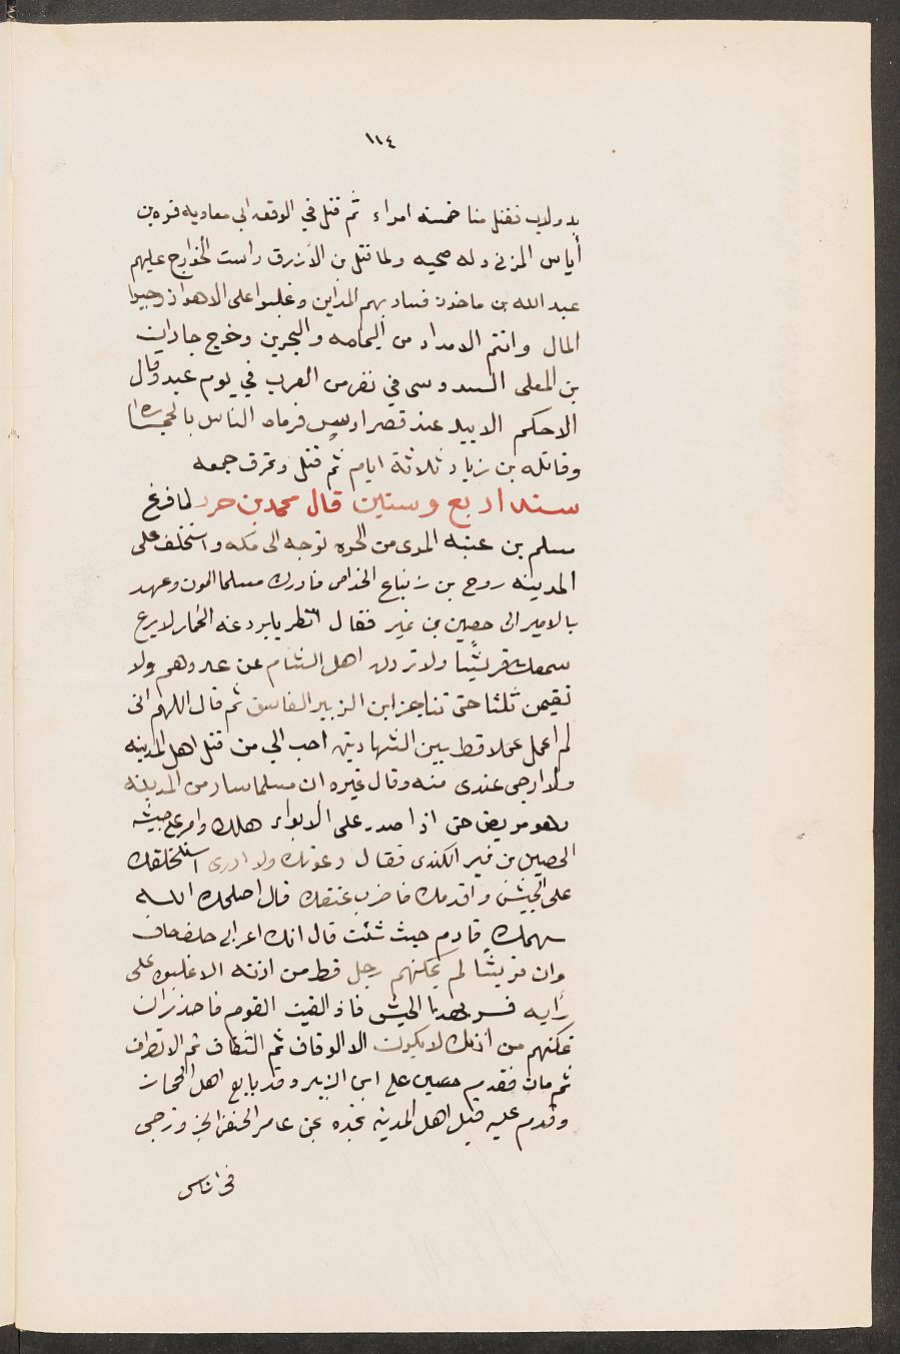 ١١٤
بدولاب فقتل منا خمسه امراء ثم قتل في الوقعه ابي معاويه قره بن
أياس المزني وله صحبه ولما قتل بن الأزرق راست الخوارج عليهم
عبد الله بن ماخور فسار بهم المداين وغلبوا على الاهواز وجبوا
المال واتتهم الامداد من اليمامه والبحرين وخرج
بن المعلى السدوسي في نفر من العرب في يوم عيد وقال
الاحكم الا عند قصر اوس فرماه الناس بالحجاره
وقاتله بن زياد ثلاثة ايام ثم قتل وتفرق جمعه
سنه اربع وستين قال محمد بن جرير لما فرغ
مسلم بن عقبه المرى من الحره توجه الى مكه واستخلف على
المدينه روح بن زنباع الجذامى فادرك مسلما الموت وعهد
بالامير الى حصين بن نمير فقال انظر يابردعه الحمار لا يرع
سمعك قريشيا ولا تردن اهل الشام عن عدوهم ولا
تقيمن ثلثا حتى تناجز ابن الزبير الفاسق ثم قال اللهم انى
لم اعمل عملا قط بين الشهادتين احب الي من قتل اهل المدينه
ولا ارجى عندى منه وقال غيره ان مسلما سار من المدينه
وهو مريض حتى اذا صدر على الابواء هلك وامر على جيشه
الحصين بن نمير الكندى فقال دعوتك ولا ادرى استخلفك
على الجيش واقدمك فاضرب عنقك قال اصلحك الله
سهمك فارم حيث شئت قال انك اعرابى جلف جاف
وان قريشا لم يمكنهم رجل قط من اذنه الا غلبوه على
رايه فسر بهذا الجيش فاذا لقيت القوم فاحذر ان
تمكنهم من اذنك لا يكون الا الوقاف ثم الثقاف ثم الانصراف
ثم مات فقدم حصين على ابن الزبير وقد بايع اهل الحجاز
وقدم عليه قبل اهل المدينه نجده بن عامر الحنفى
فى اناس